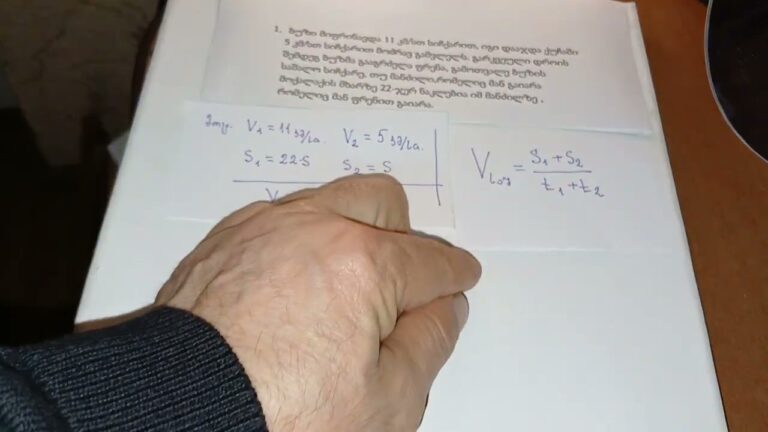 1. ბუზი მიფრინავდა 11 კმ/სთ სიჩქარით, იგი დააჯდა ქუჩაში
5 კმ/სთ სიჩქარით მომრავ გამვლელს. გარკვეული დროის
შემდეგ ბუზმა გააგრძელა ფრენა, გამოთვალე ბუზის
საშალო სიჩქარე, თუ მანძილი,რომელიც მან გაიარა
მოქალაქის მხარზე 22-ჯერ ნაკლებია იმ მანძილზე ,
რომელიც მან ფრენით გაიარა.
მოც. V₁ = 11 კმ/სთ. V₂ = 5 კმ/სთ.
S₁ = 22·S S₂ = S
V
Vსაშ = S₁ + S₂ / t₁ + t₂